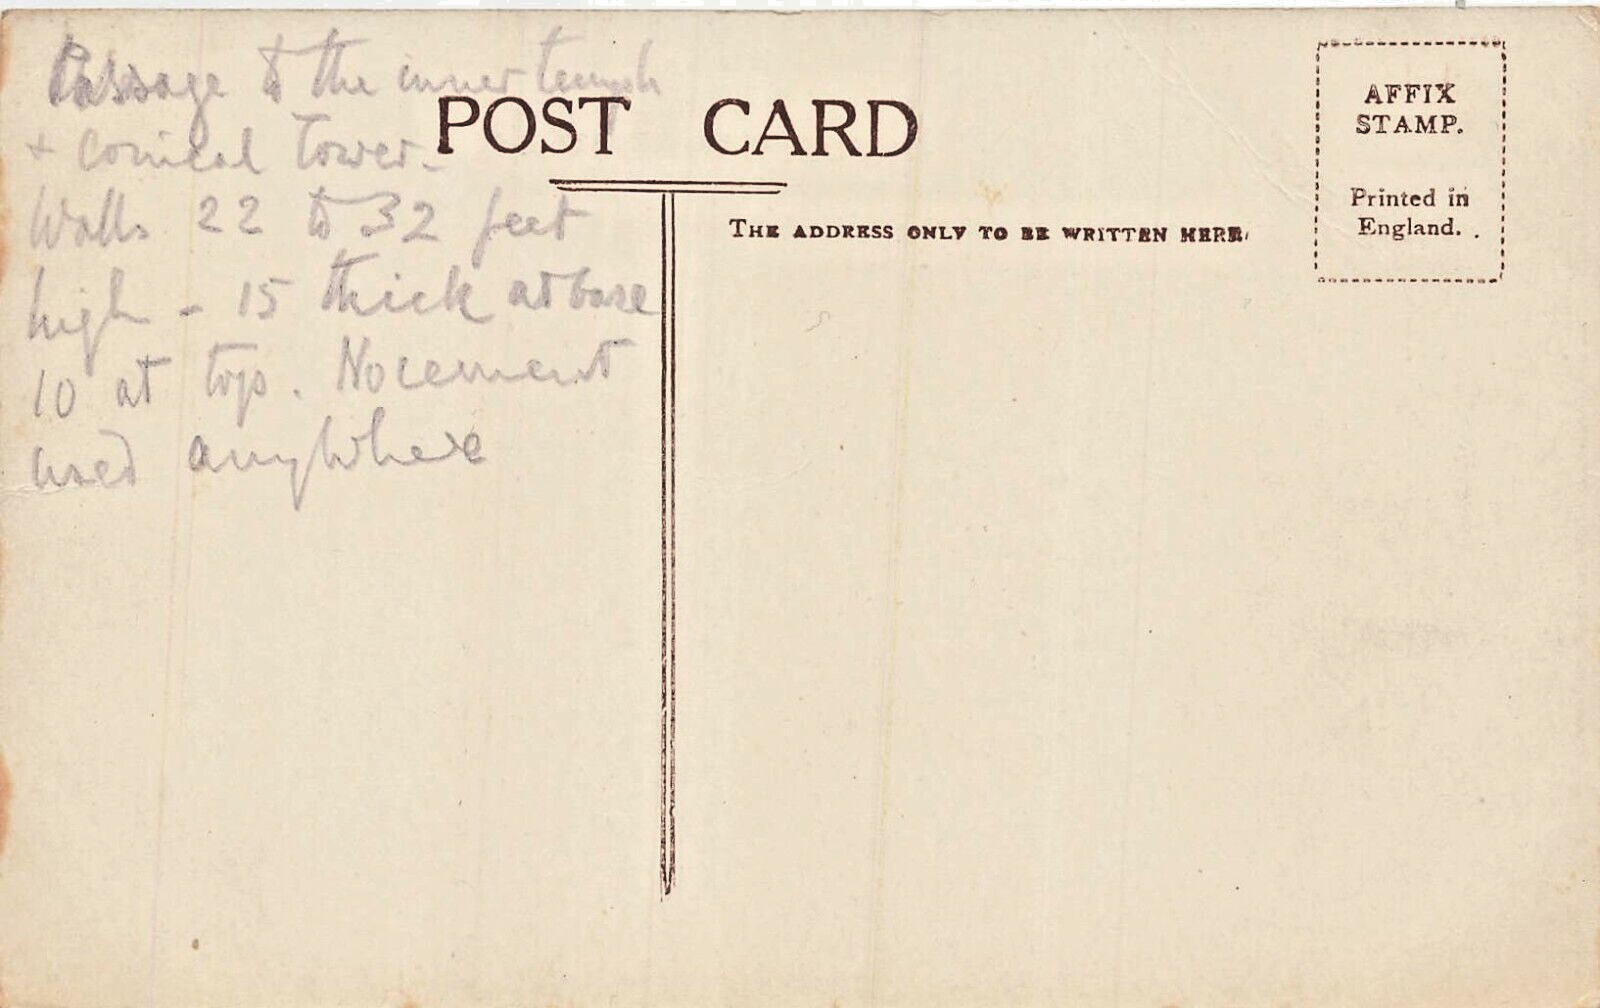 Passage to the inner temple
+ Conical Tower.
Walls 22 to 32 feet
high - 15 thick at base
10 at top. No cement
used anywhere
POST CARD
THE ADDRESS ONLY TO BE WRITTEN HERE.
AFFIX
STAMP.
Printed in
England.